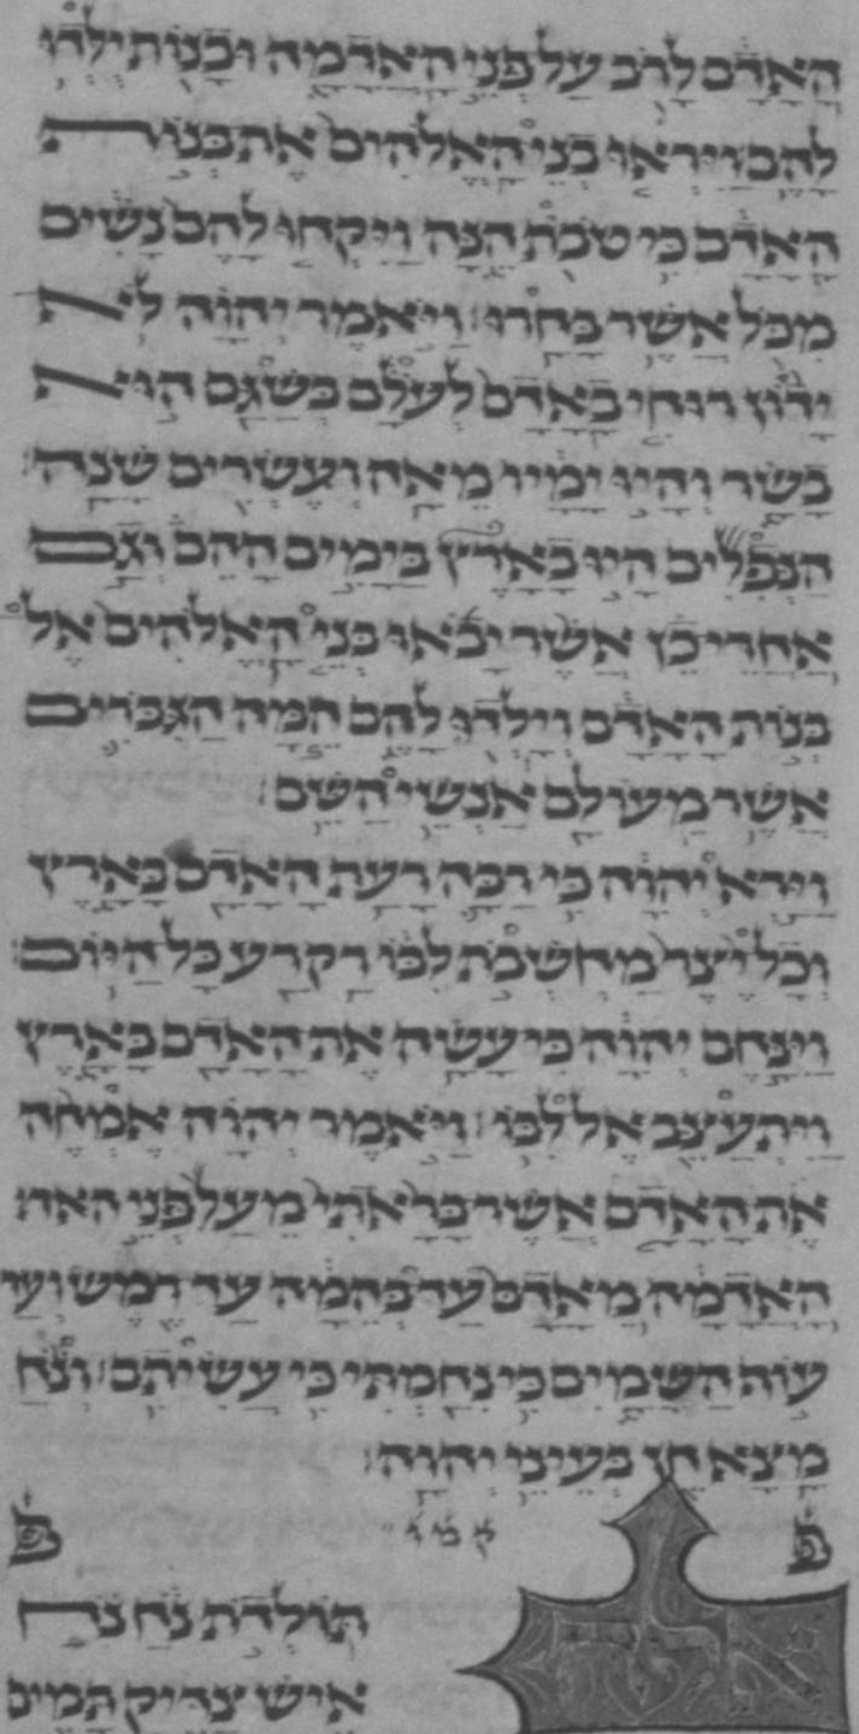 האדם לרב על פני האדמה ובנות ילדו
להם ויראו בני האלהים את בנות
האדם כי טבת הנה ויקחו להם נשים
מכל אשר בחרו ויאמר יהוה לא
ידון רוחי באדם לעלם בשגם הוא
בשר והיו ימיו מאה ועשרים שנה
הנפלים היו בארץ בימים ההם וגם
אחרי כן אשר יבאו בני האלהים אל
בנות האדם וילדו להם המה הגברים
אשר מעולם אנשי השם
וירא יהוה כי רבה רעת האדם בארץ
וכל יצר מחשבת לבו רק רע כל היום
וינחם יהוה כי עשה את האדם בארץ
ויתעצב אל לבו ויאמר יהוה אמחה
את האדם אשר בראתי מעל פני האד
האדמה מאדם עד בהמה עד רמש ועד
עוף השמים כי נחמתי כי עשיתם ונח
מצא חן בעיני יהוה
פ פ
אלה תולדת נח נח
איש צדיק תמים